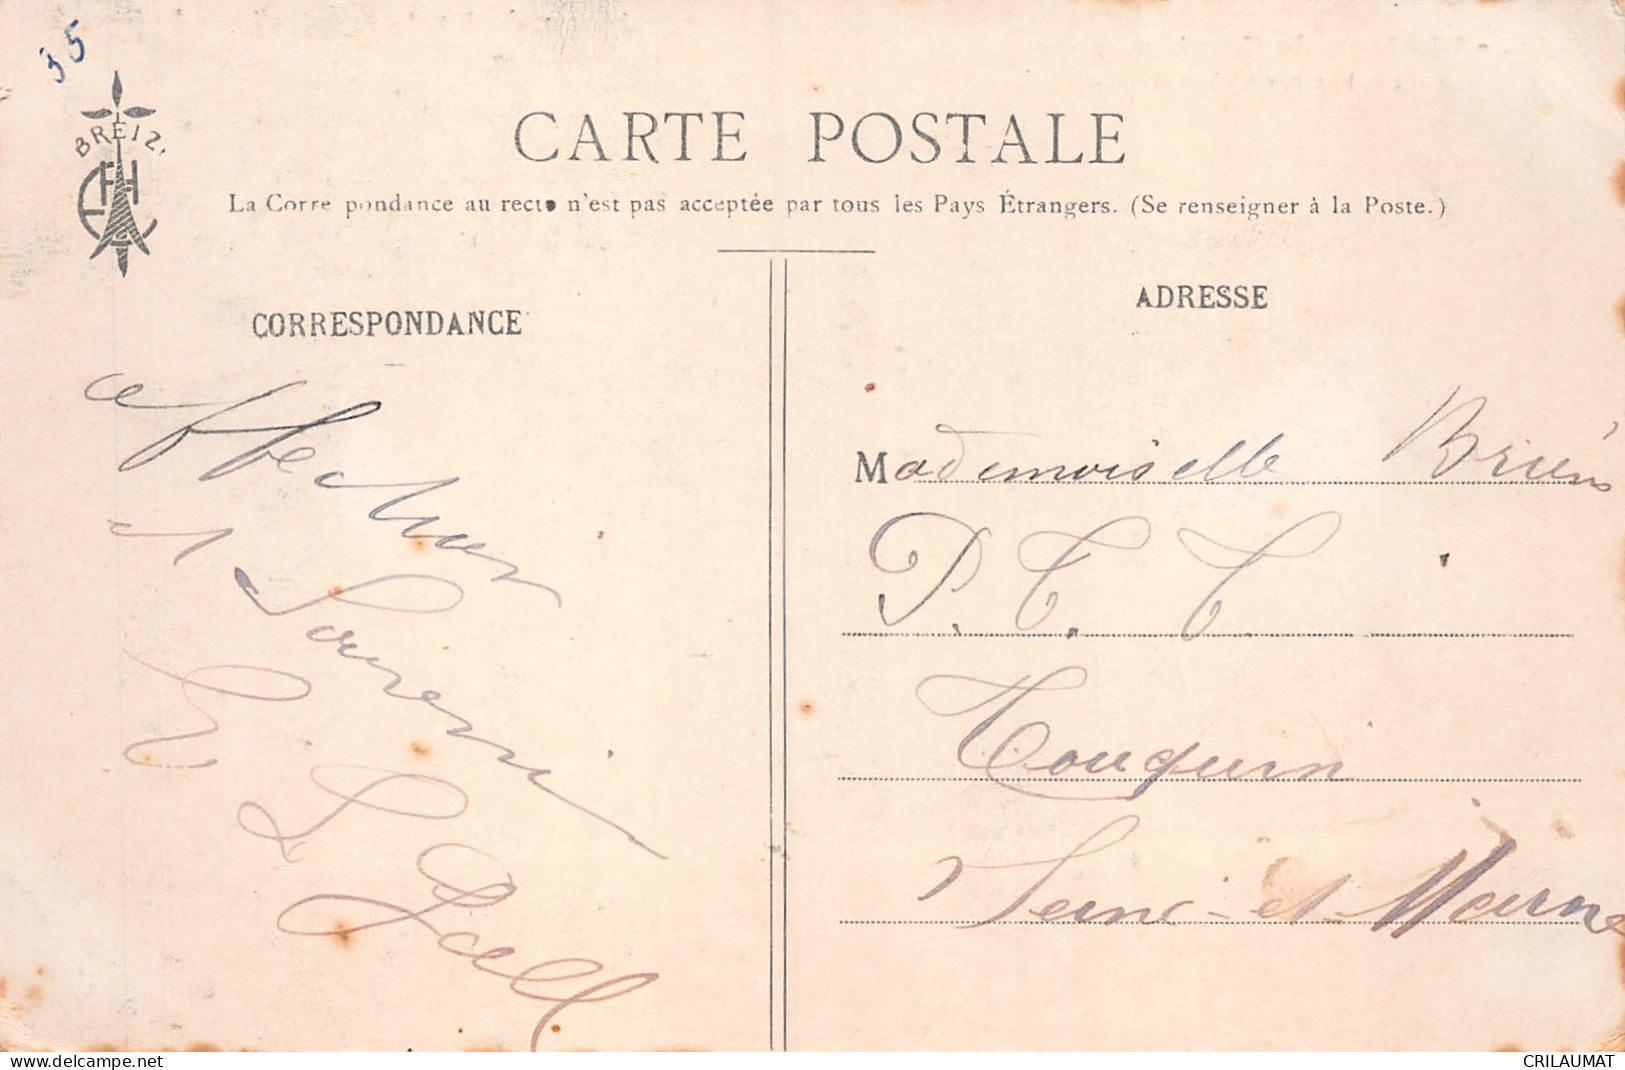 35
BREIZ
EHC
CARTE POSTALE
La Corre pondance au recto n'est pas acceptée par tous les Pays Étrangers. (Se renseigner à la Poste.)
CORRESPONDANCE
ADRESSE
affectueux
et
E. L.
Mademoiselle
P. T. T
Touquin
Seine-et-Marne
delcampe.net
CRILAUMAT